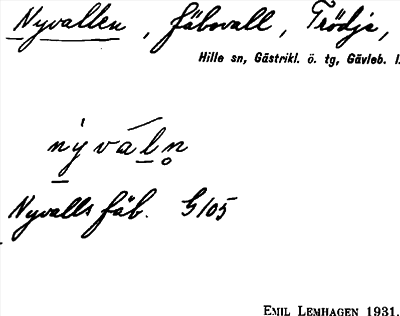 Nyvallen, fäbovall, Trödje,
Hille sn, Gästrikl. ö. tg, Gävleb. l.
nyváln̥
Nyvalls fäb. G105
EMIL LEMHAGEN 1931.